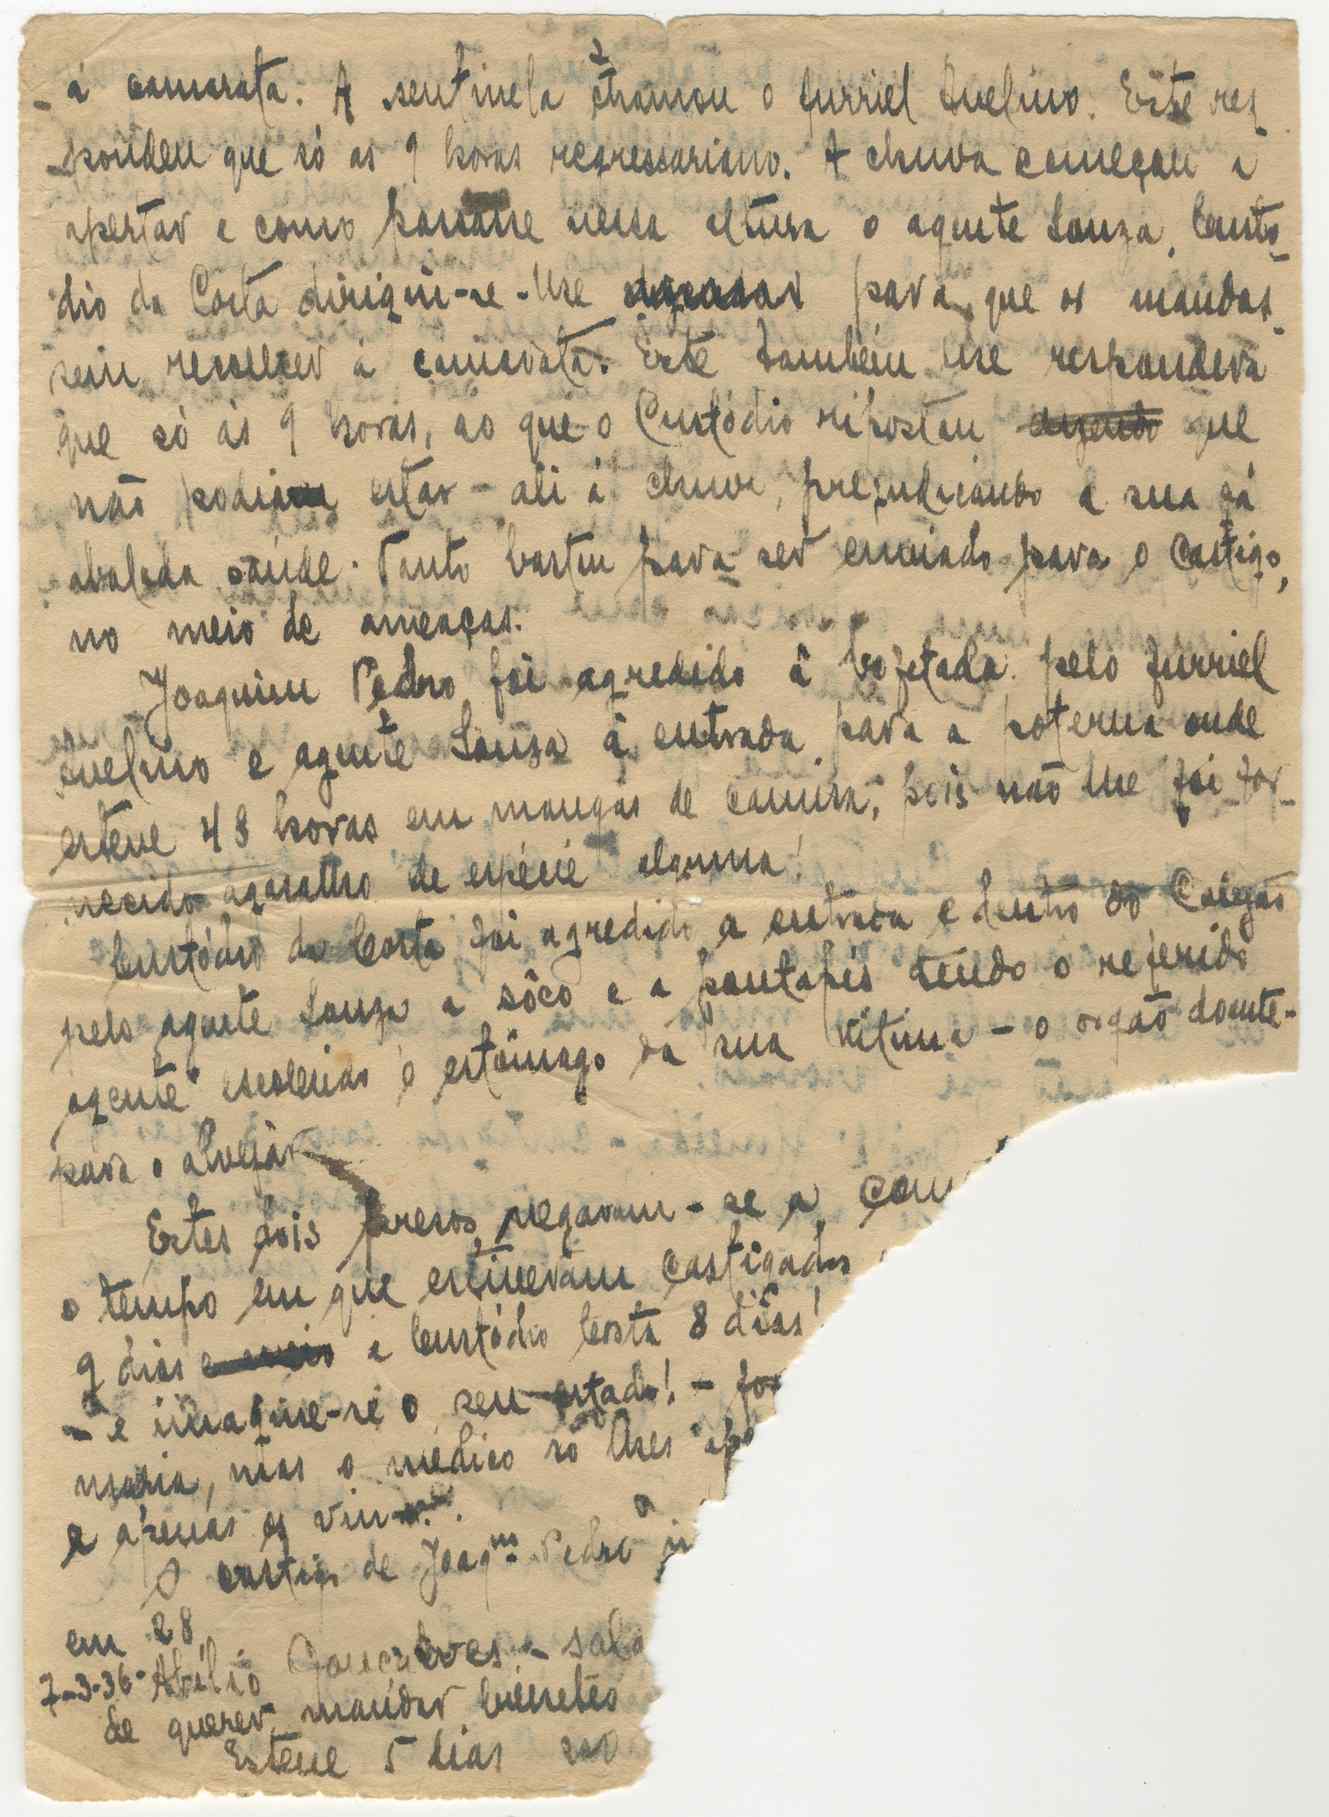 à camarata. A sentinela chamou o furriel Avelino. Este res-
pondeu que só as 9 horas regressariam. A chuva começou a
apertar e como passasse nessa altura o agente Souza, Custó-
dio da Costa dirigiu-se-lhe para que os mandas-
sem recolher à camarata. Este também lhe respondera
que só ás 9 horas, ao que o Custódio ripostou que
não podiam estar ali á chuva, prejudicando a sua já
abalada saúde. Tanto bastou para ser enviado para o castigo,
no meio de ameaças.
Joaquim Pedro foi agredido á bofetada pelo furriel
Avelino e agente Souza á entrada para a poterna onde
esteve 48 horas em mangas de camisa, pois não lhe foi for-
necido agasalho de espécie alguma!
Custódio da Costa foi agredido á entrada e dentro do Caixão
pelo agente Souza a sôco e a pontapés tendo o referido
agente escolhido o estômago da sua vítima - o orgão doente -
para o alvejar
Estes dois presos, negavam-se a com
o tempo em que estiveram castigados
9 dias e meio e Custódio Costa 8 dias!
- e imagine-se o seu estado! - for
maria, mas o médico só lhes apa
e apenas os viu.
O castigo de Joaqm Pedro
em 28
7-3-36 - Abílio Gonçalves - sala
de querer mandar bilhetes
Esteve 5 dias